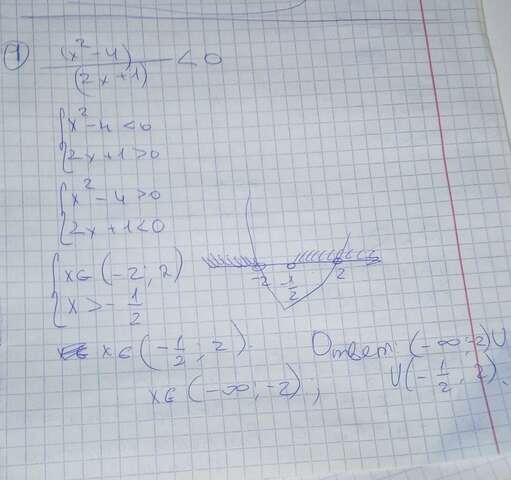 1
(x² - 4)
(2x+1) < 0
x² - 4 < 0
2x + 1 > 0
x² - 4 > 0
2x + 1 < 0
x ∈ (-2; 2)
x > - 1/2
-2 -1/2 2
x ∈ (-1/2; 2).
x ∈ (-∞; -2);
Ответ: (-∞; -2) ∪
∪ (-1/2; 2).